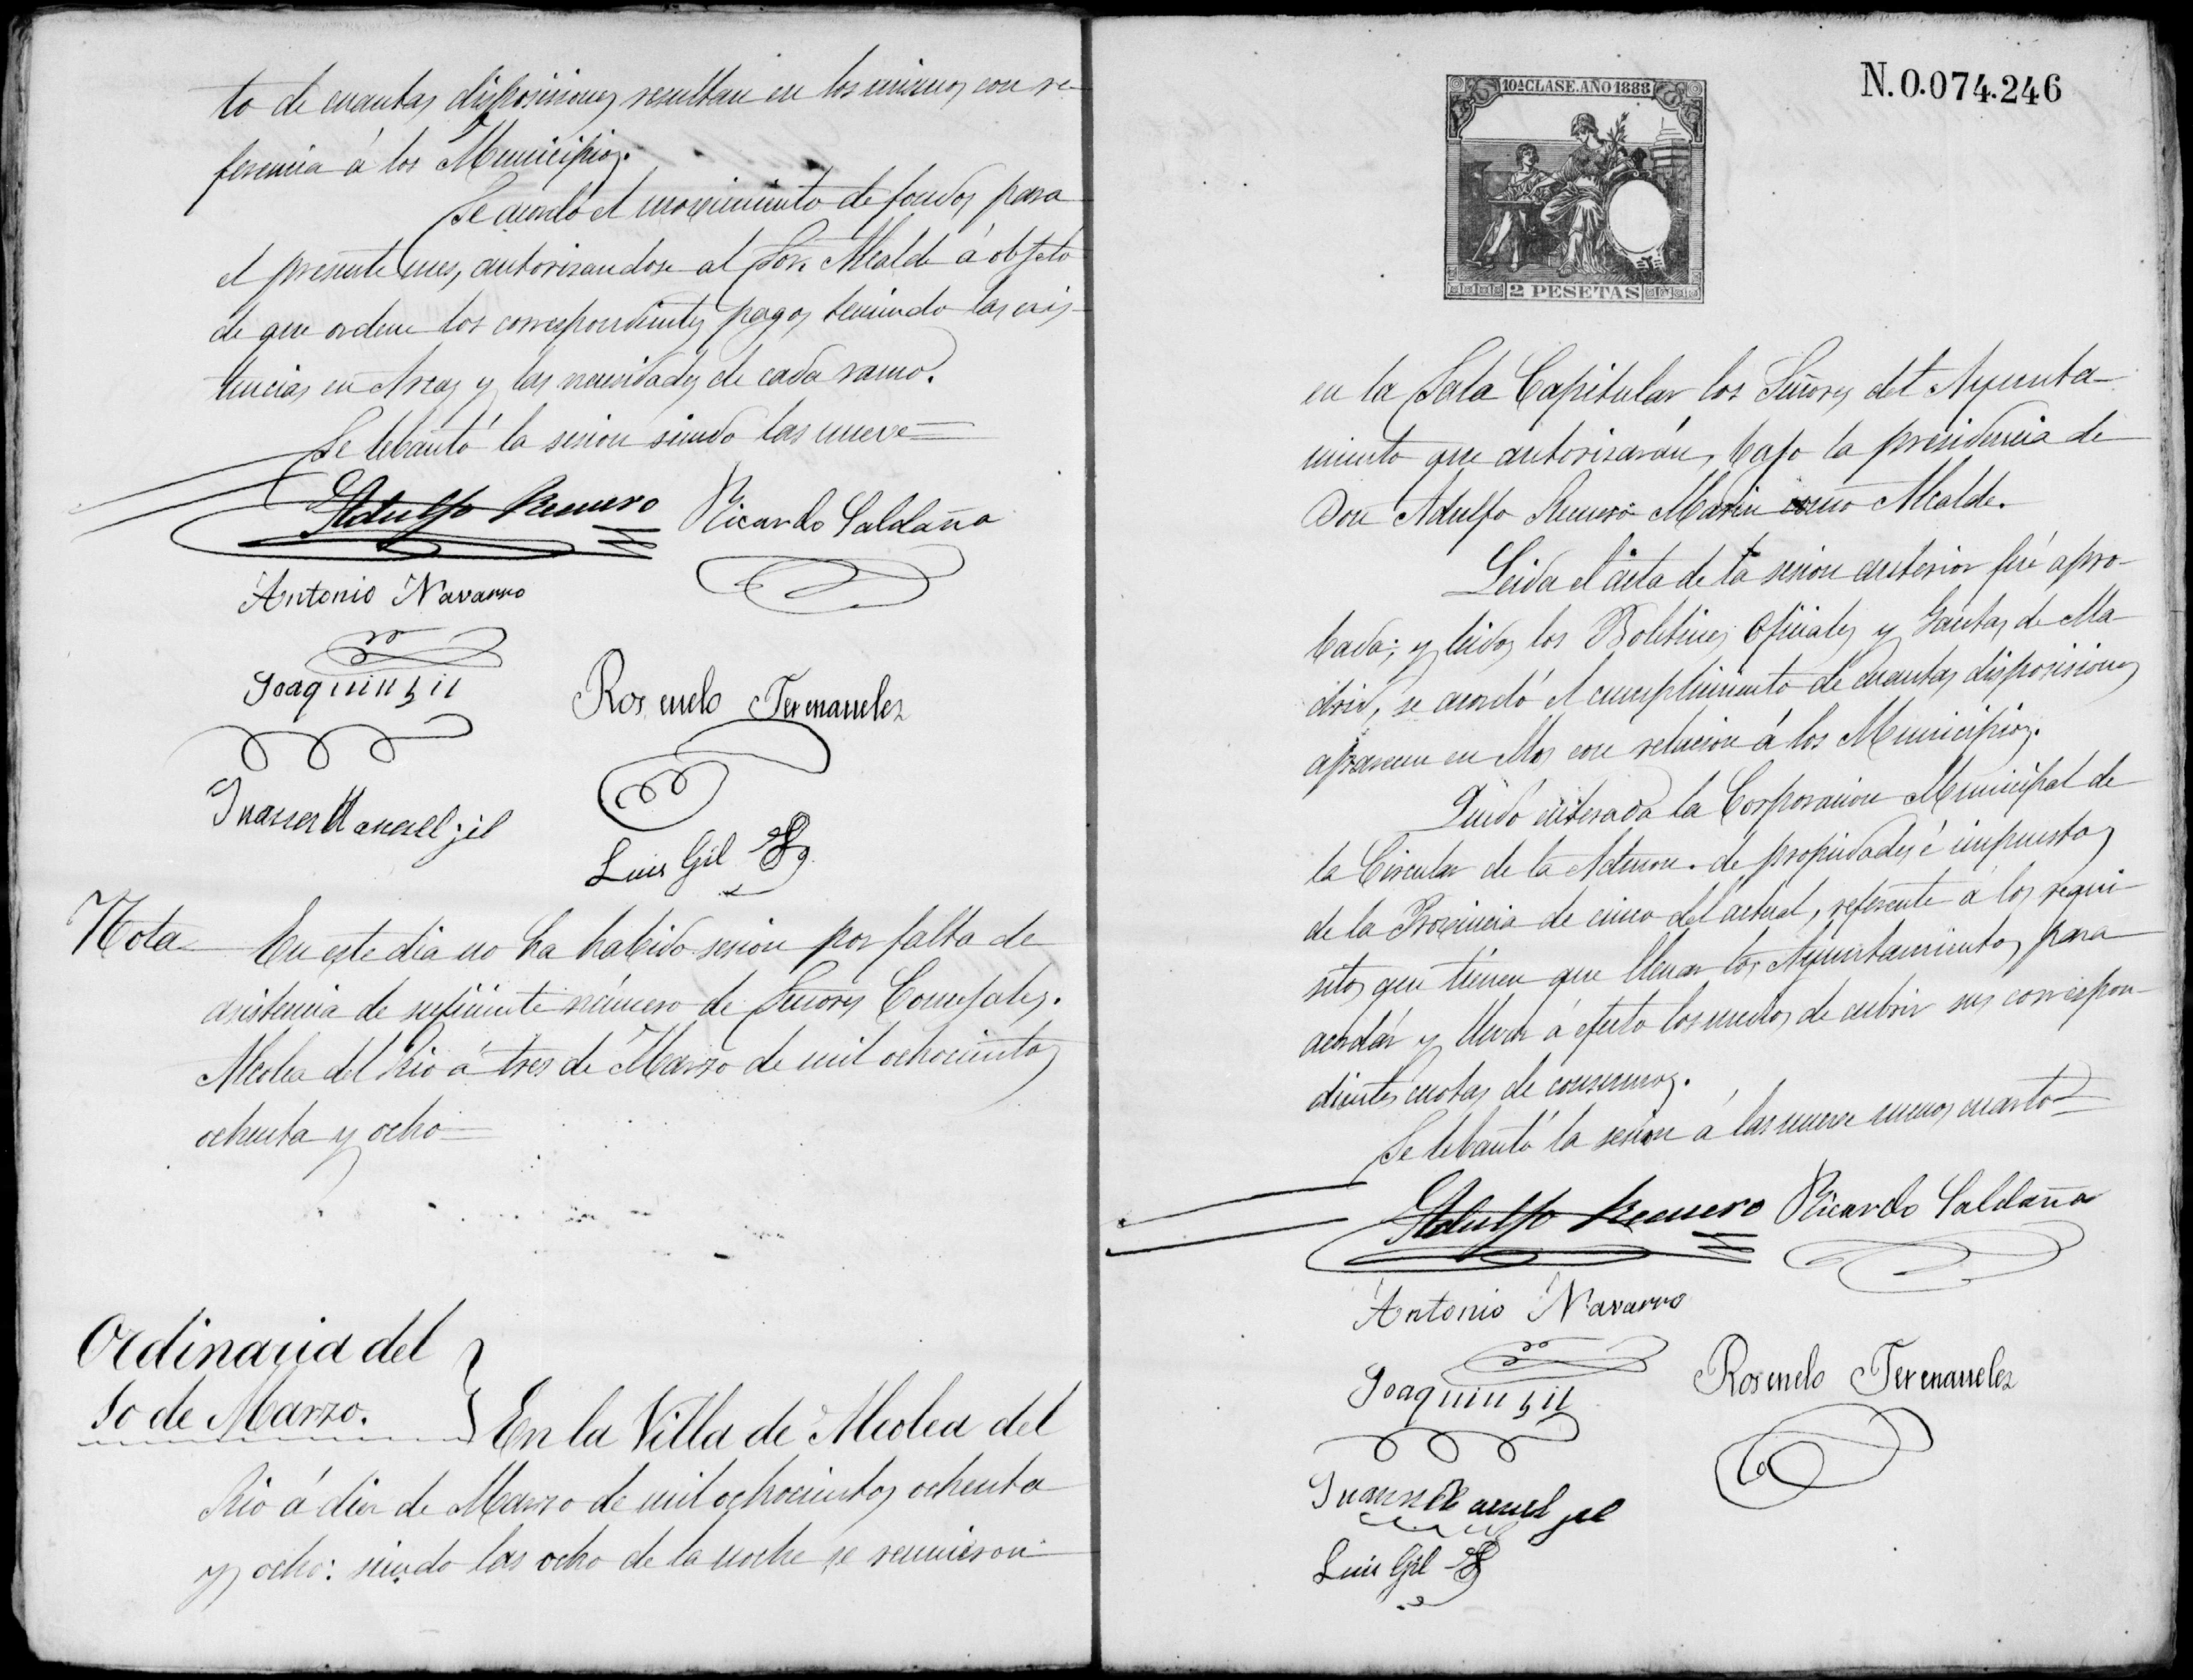 to de cuantas disposiciones resultan en los mismos con re-
ferencia á los Municipios.
Se acordó el movimiento de fondos para
el presente mes, autorizandose al Sor. Alcalde á objeto
de que ordene los correspondientes pagos teniendo las exis-
tencias en Arcas y las necesidades de cada ramo.
Se lebantó la sesion siendo las nueve=
Adulfo Romero Ricardo Saldaña
Antonio Navarro
Joaquin gil
Rosendo Fernandez
Juan Manuel gil
Luis Gil
Nota En este dia no ha habido sesion por falta de
asistencia de suficiente número de Señores Concejales.
Alcolea del Rio á tres de Marzo de mil ochocientos
ochenta y ocho=
Ordinaria del
10 de Marzo.
En la Villa de Alcolea del
Rio á diez de Marzo de mil ochocientos ochenta
y ocho: siendo las ocho de la noche se reunieron
10ª CLASE. AÑO 1888
2 PESETAS
N.0.074.246
en la Sala Capitular los Señores del Ayunta-
miento que autorizarán, bajo la presidencia de
Don Adulfo Romero Marin como Alcalde.
Leida el acta de la sesion anterior fué apro-
bada; y leidos los Boletines Oficiales y Gacetas de Ma-
drid, se acordó el cumplimiento de cuantas disposiciones
aparecen en ellos con relacion á los Municipios.
Quedó enterada la Corporacion Municipal de
la Circular de la Admon. de propiedades é impuestos
de la Provincia de cinco del actual, referente á los requi-
sitos que tienen que llenar los Ayuntamientos para
acordar y llevar á efecto los medios de cubrir sus correspon-
dientes cuotas de consumos.
Se lebantó la sesion á las nueve menos cuarto=
Adulfo Romero Ricardo Saldaña
Antonio Navarro
Joaquin gil
Rosendo Fernandez
Juan Manuel gil
Luis Gil